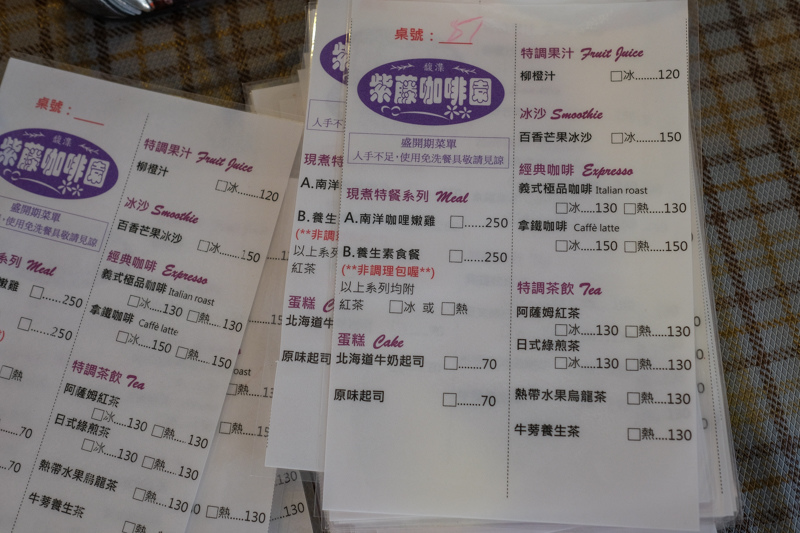 桌號：51
馥漾
紫藤咖啡園
盛開期菜單
人手不足，使用免洗餐具敬請見諒
現煮特餐系列 Meal
A.南洋咖哩嫩雞 □.....250
B.養生素食餐 □.....250
(**非調理包喔**)
以上系列均附
紅茶 □冰 或 □熱
蛋糕 Cake
北海道牛奶起司 □.......70
原味起司 □.......70
特調果汁 Fruit Juice
柳橙汁 □冰.......120
冰沙 Smoothie
百香芒果冰沙 □冰.....150
經典咖啡 Expresso
義式極品咖啡 Italian roast
□冰.....130 □熱.....130
拿鐵咖啡 Caffè latte
□冰.....150 □熱.....150
特調茶飲 Tea
阿薩姆紅茶
□冰.....130 □熱.....130
日式綠煎茶
□冰.....130 □熱.....130
熱帶水果烏龍茶 □熱.....130
牛蒡養生茶 □熱.....130
桌號：
紫藤咖啡園
盛開期菜單
，使用免洗餐具敬請見諒
系列 Meal
嫩雞 □.....250
□.....250
□熱
.....70
.....70
特調果汁 Fruit Juice
柳橙汁 □冰.....120
冰沙 Smoothie
百香芒果冰沙 □冰.....150
經典咖啡 Expresso
義式極品咖啡 Italian roast
□冰.....130 □熱.....130
拿鐵咖啡 Caffè latte
□冰.....150 □熱.....150
特調茶飲 Tea
阿薩姆紅茶
□冰.....130 □熱.....130
日式綠煎茶
□冰.....130 □熱.....130
熱帶水果烏龍茶 □熱.....130
牛蒡養生茶 □熱.....130
人手不足
現煮特
A.南洋
B.養生
(**非調
以上系列
紅茶
蛋糕 C
北海道牛
原味起司
oast
□熱.....130
□熱.....130